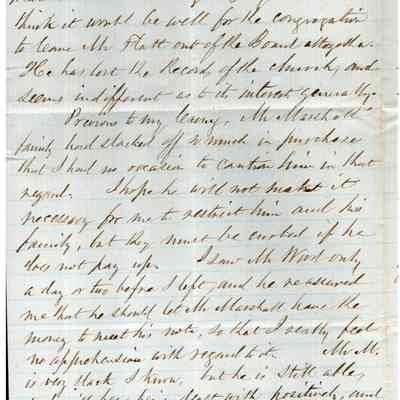 think it would be well for the congregation
to leave Mr Flatt out of the Board altogether.
He has lost the Records of the church, and
seems indifferent as to the interest generally.
Previous to my leaving, Mr Marshall's
family had slacked off so much in purchase
that I had no occasion to caution him in that
regard. I hope he will not make it
necessary for me to restrict him and his
family, but they must be curbed if he
does not pay up. I saw Mr Wood only
a day or two before I left, and he reassured
me that he should let Mr Marshall have the
money to meet his note, so that I really feel
no apprehension with regard to it. Mr M.
is very slack I know, but he is still able,
dealt with positively, and